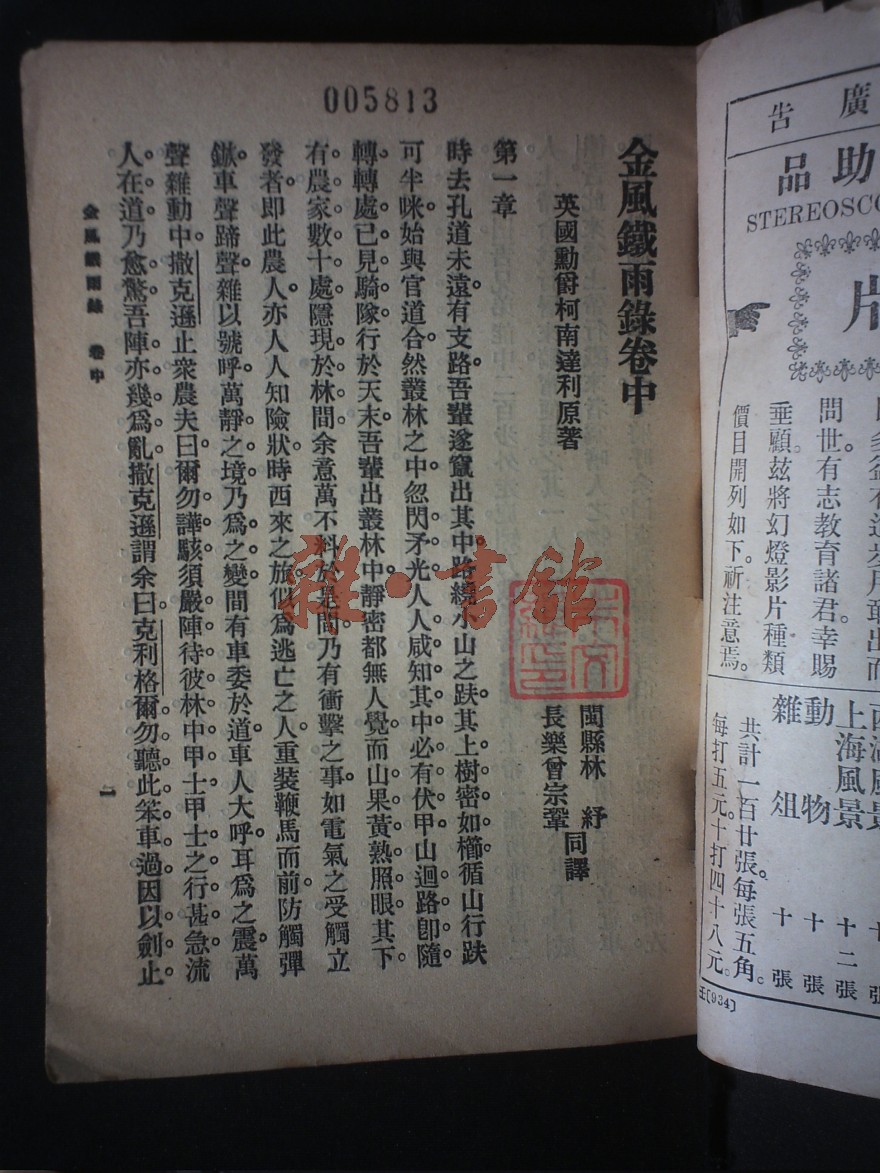 005813
金風鐵雨錄卷中
英國勳爵柯南達利原著
閩縣林　紓
長樂曾宗鞏
同譯
第一章
時去孔道未遠有支路吾輩遂竄出其中路繞小山之趺其上樹密如櫛循山行趺
可半咪始與官道合然叢林之中忽閃矛光人人咸知其中必有伏甲山迴路卽隨
轉轉處已見騎隊行於天末吾輩出叢林中靜密都無人覺而山果黃熟照眼其下
有農家數十處隱現於林間余意萬不料於是間乃有衝擊之事如電氣之受觸立
發者卽此農人亦人人知險狀時西來之旅似爲逃亡之人重裝鞭馬而前防觸彈
鏃車聲蹄聲雜以號呼萬靜之境乃爲之變間有車委於道車人大呼耳爲之震萬
聲雜動中撒克遜止衆農夫曰爾勿譁駭須嚴陣待彼林中甲士甲士之行甚急流
人在道乃愈驚吾陣亦幾爲亂撒克遜謂余曰克利格爾勿聽此笨車過因以劍止
金風鐵雨錄　卷中
一
雜·書舘
廣告
助品
STEREOSCO
版
問世有志教育諸君幸賜
垂顧茲將幻燈影片種類
價目開列如下祈注意焉。
上海風景　十二張
動物　十張
雜俎　十張
共計一百廿張。每張五角。
每打五元。十打四十八元。
壬(934)